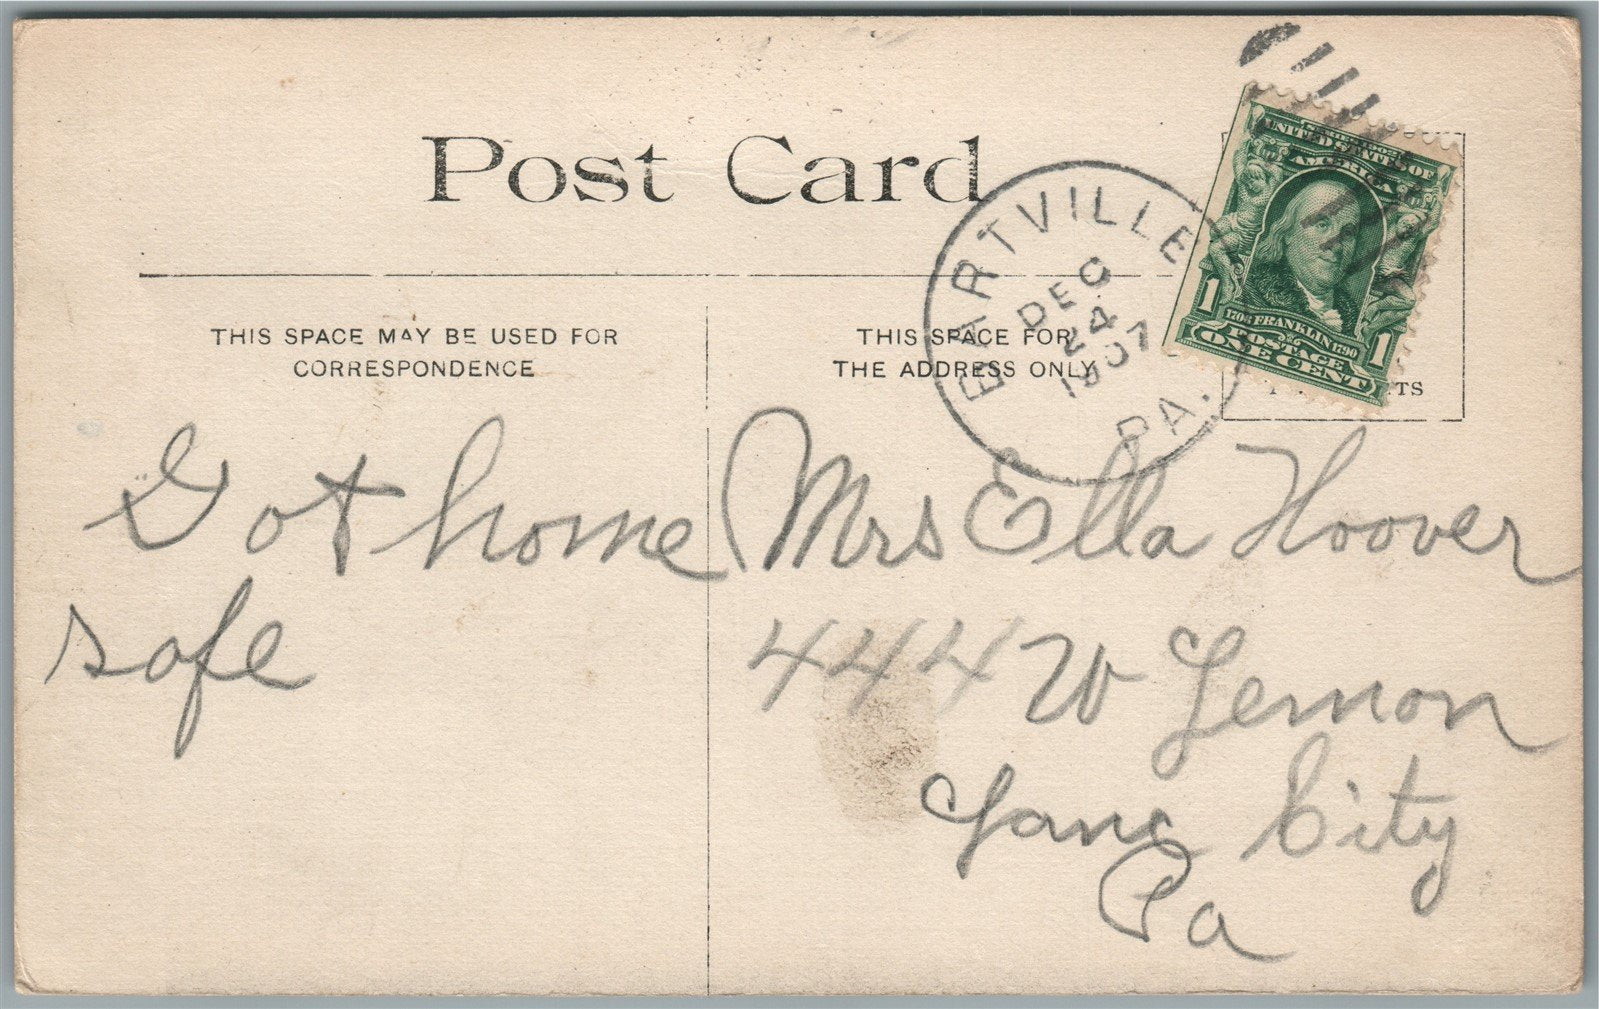 Post Card
THIS SPACE MAY BE USED FOR
CORRESPONDENCE
THIS SPACE FOR
THE ADDRESS ONLY
BARTVILLE
DEC
24
1907
PA.
SERIES 1902
UNITED STATES OF
AMERICA
1706 FRANKLIN 1790
1 POSTAGE 1
ONE CENT
TS
Got home
safe
Mrs Ella Hoover
444 W Lemon
Lanc City
Pa